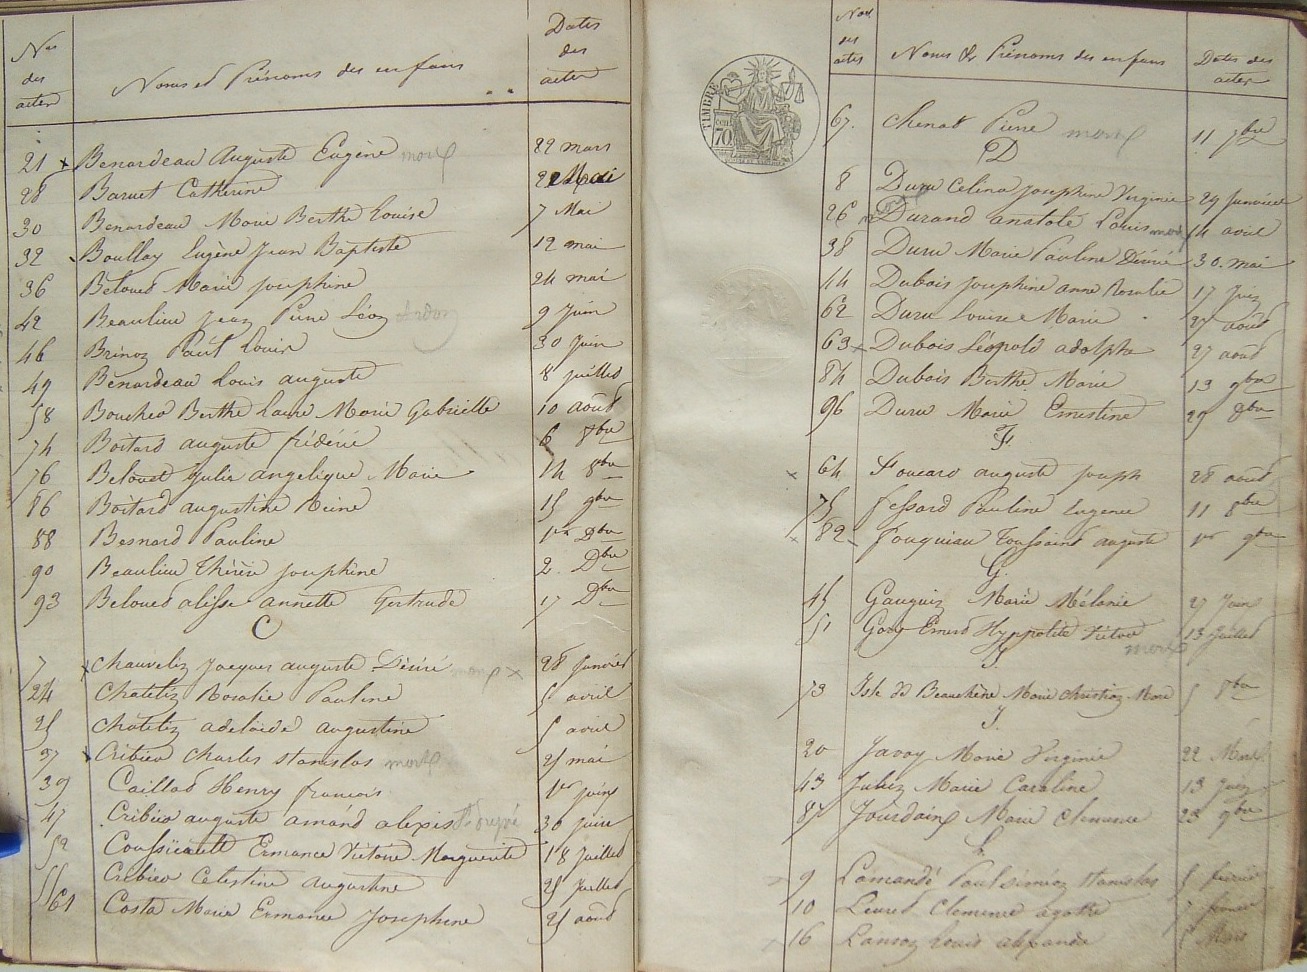 Nos des actes
Noms et Prénoms des enfans
Dates des actes
21 Benardeau Auguste Eugène mort 22 mars
28 Baruet Catherine 22 Mai
30 Benardeau Marie Berthe Louise 7 Mai
32 Boullay Eugène Jean Baptiste 12 mai
36 Beloued Marie josephine 24 mai
42 Beaulieu Jean Pierre Léon 9 Juin
46 Brinoz Paul Louis 30 Juin
49 Benardeau Louis auguste 8 juillet
58 Boucher Berthe Laure Marie Gabrielle 10 août
74 Boitard auguste frédéric 6 8bre
76 Belouet Julia angelique Marie 14 8bre
86 Boitard augustine Reine 15 9bre
88 Besnard Pauline 1er Dbre
90 Beaulieu Thérèse josephine 2 Dbre
93 Beloued alisse annette Gertrude 17 Dbre
C
7 Chauvelin Jacques auguste Désiré mort 28 Janvier
24 Chatelin Rosalie Pauline 5 avril
25 Chatelin adelaïde augustine 5 avril
37 Cribier Charles stanislas mort 25 mai
39 Caillad Henry francois 1er juin
47 Cribier auguste amand alexis 30 juin
52 Coussicault Ermance Victoire Marguerite 18 Juillet
55 Cribier Celestine augustine 25 Juillet
61 Costa Marie Ermance Josephine 21 août
Nos des actes
Noms & Prénoms des enfans
Dates des actes
TIMBRE
70
67. Chenat Pierre mort 11 7bre
D
8 Duru Celina josephine Virginie 29 janvier
26 Durand anatole Louis mort 14 avril
38 Duru Marie Pauline Désirée 30. mai
44 Dubois josephine anne Rosalie 17 Juin
62 Duru Louise Marie 27 août
63 Dubois Léopold adolphe 27 août
84 Dubois Berthe Marie 13 9bre
96 Duru Marie Ernestine 29 Dbre
F
64 Foucard auguste joseph 28 août
75 fessard Pauline Eugenie 11 8bre
82 fouquiau Toussaint auguste 1er 9bre
G.
45 Gauguin Marie Mélanie 27 Juin
51 Hyppolite Victor 13 juillet
mort
I.
73 Isle de Beauchêne Marie christian 5 8bre
J.
20 Javoy Marie Virginie 22 Mars
43 Jubin Marie Caroline 13 Juin
87 Jourdain Marie Clemence 23 9bre
L
9 Lamandé Paul siméon stanislas 5 février
10 Leuret Clemence agathe 7 fevrier
16 Lanson Louis alexandre Mars